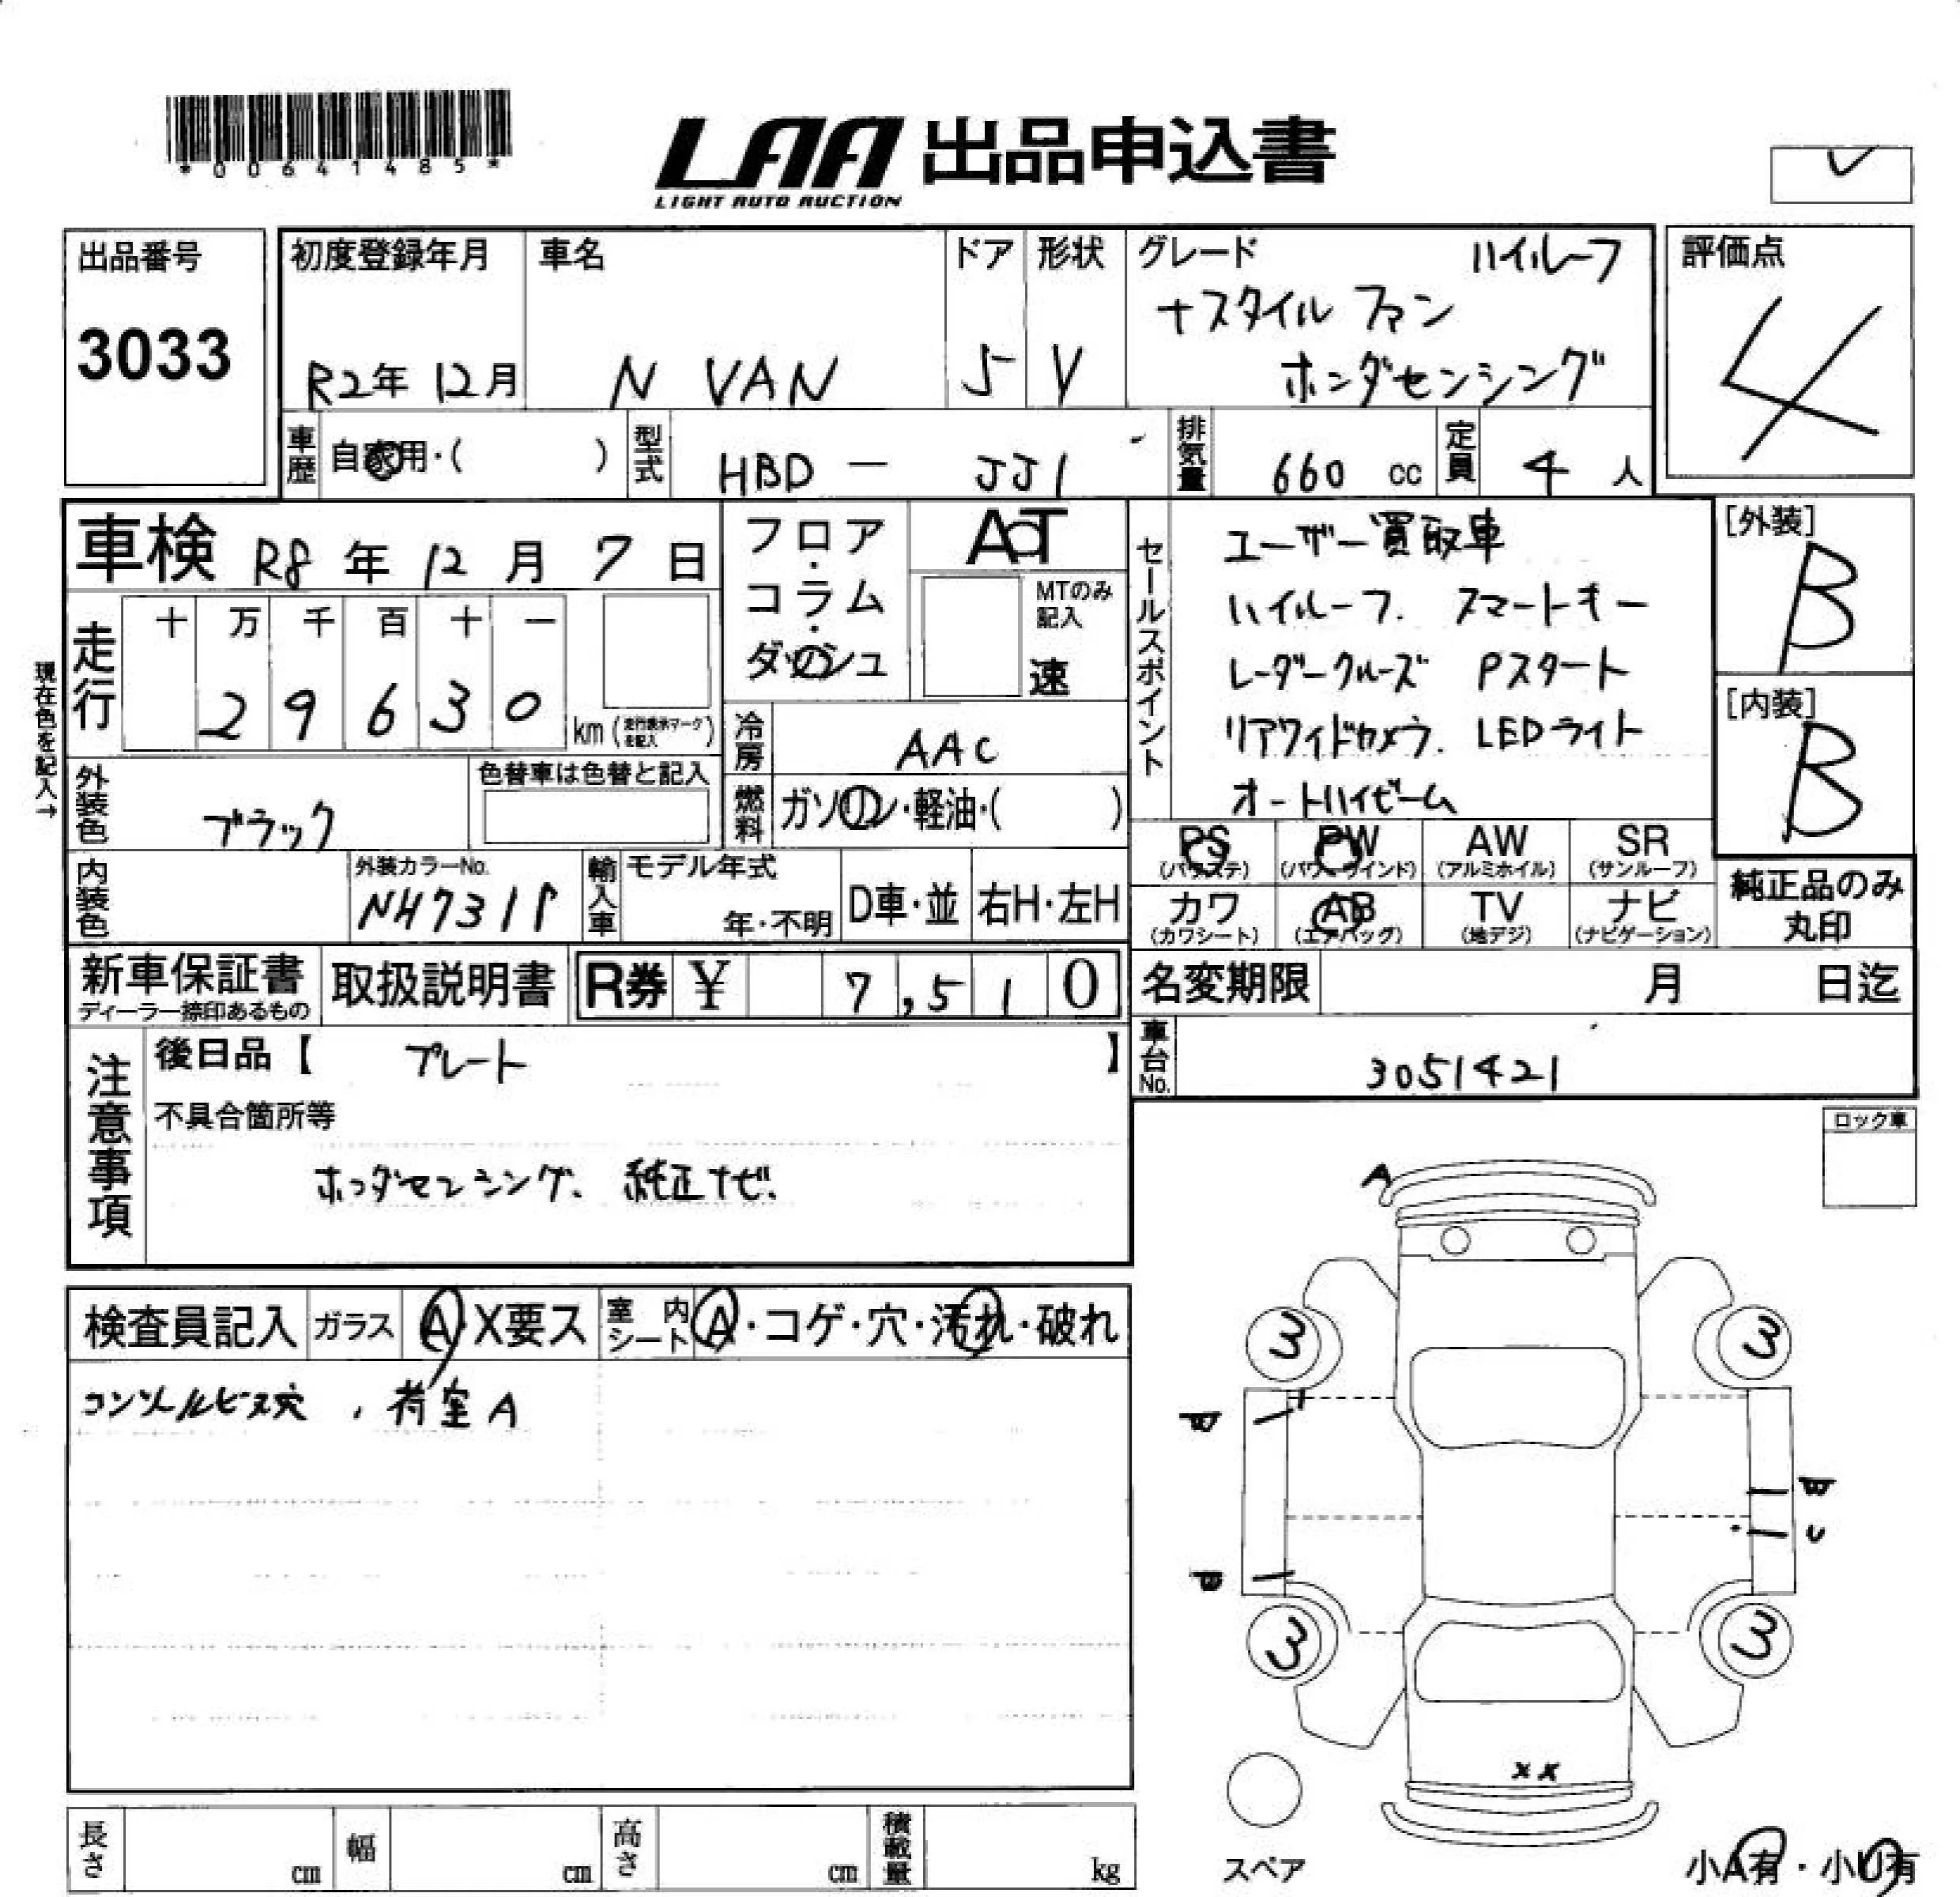 *00641485*
LAA 出品申込書
LIGHT AUTO AUCTION
出品番号
3033
初度登録年月
R2年 12月
車名
N VAN
ドア
5
形状
V
グレード
ハイルーフ
+スタイル ファン
ホンダセンシング
評価点
4
車歴
自家用・( )
型式
HBD - JJ1
排気量
660 cc
定員
4 人
車検 R8年 12月 7日
現在色を記入→
走行
十 万 千 百 十 一
2 9 6 3 0
km (走行表示マークを記入)
フロア・コラム・ダッシュ
AT
MTのみ記入
速
冷房
AAC
燃料
ガソリン・軽油・( )
外装色
ブラック
色替車は色替と記入
内装色
外装カラーNo.
NH731P
輸入車
モデル年式
年・不明
D車・並
右H・左H
セールスポイント
ユーザー買取車
ハイルーフ. スマートキー
レーダークルーズ Pスタート
リアワイドカメラ. LEDライト
オートハイビーム
[外装]
B
[内装]
B
PS (パワステ)
PW (パワーウインド)
AW (アルミホイル)
SR (サンルーフ)
カワ (カワシート)
AB (エアバッグ)
TV (地デジ)
ナビ (ナビゲーション)
純正品のみ
丸印
新車保証書
ディーラー捺印あるもの
取扱説明書
R券 ¥ 7,510
名変期限 月 日迄
車台No.
3051421
注意事項
後日品【 プレート 】
不具合箇所等
ホンダセンシング、純正ナビ、
ロック車
検査員記入
ガラス
A・X要ス
室内シート
A・コゲ・穴・汚れ・破れ
コンソールビス穴 , 荷室A
A
3 3
U
3 3
X X
スペア
小A有・小U有
長さ cm
幅 cm
高さ cm
積載量 kg